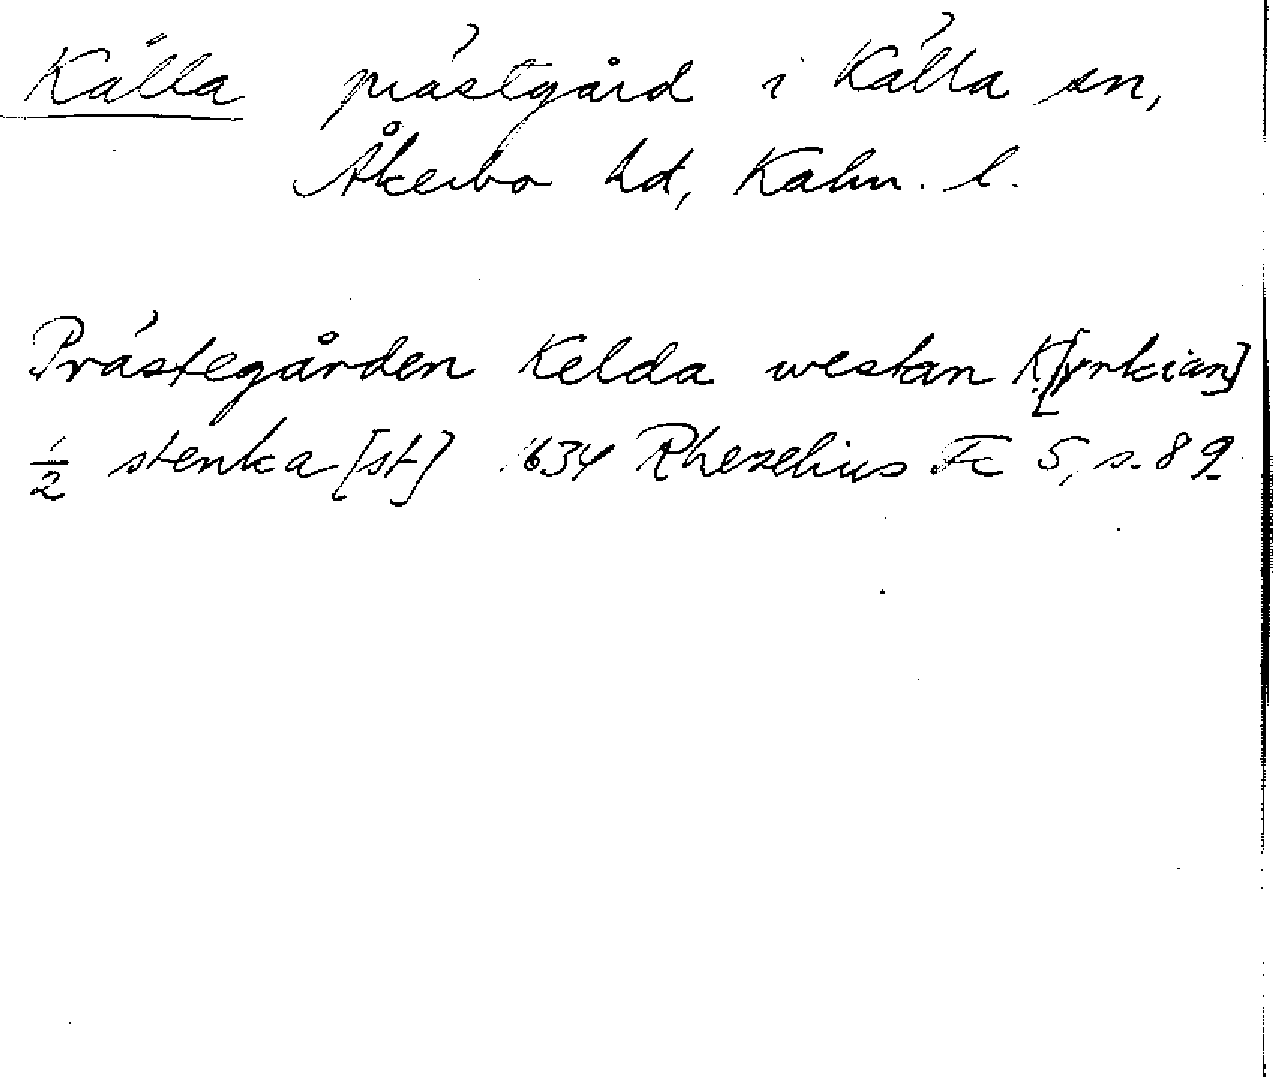 Källa prästgård i Källa sn,
Åkerbo hd, Kalm. l.
Prästegården Kelda westan K[yrkian]
1/2 stenka[st] 1634 Rhezelius Fc 5, s. 89